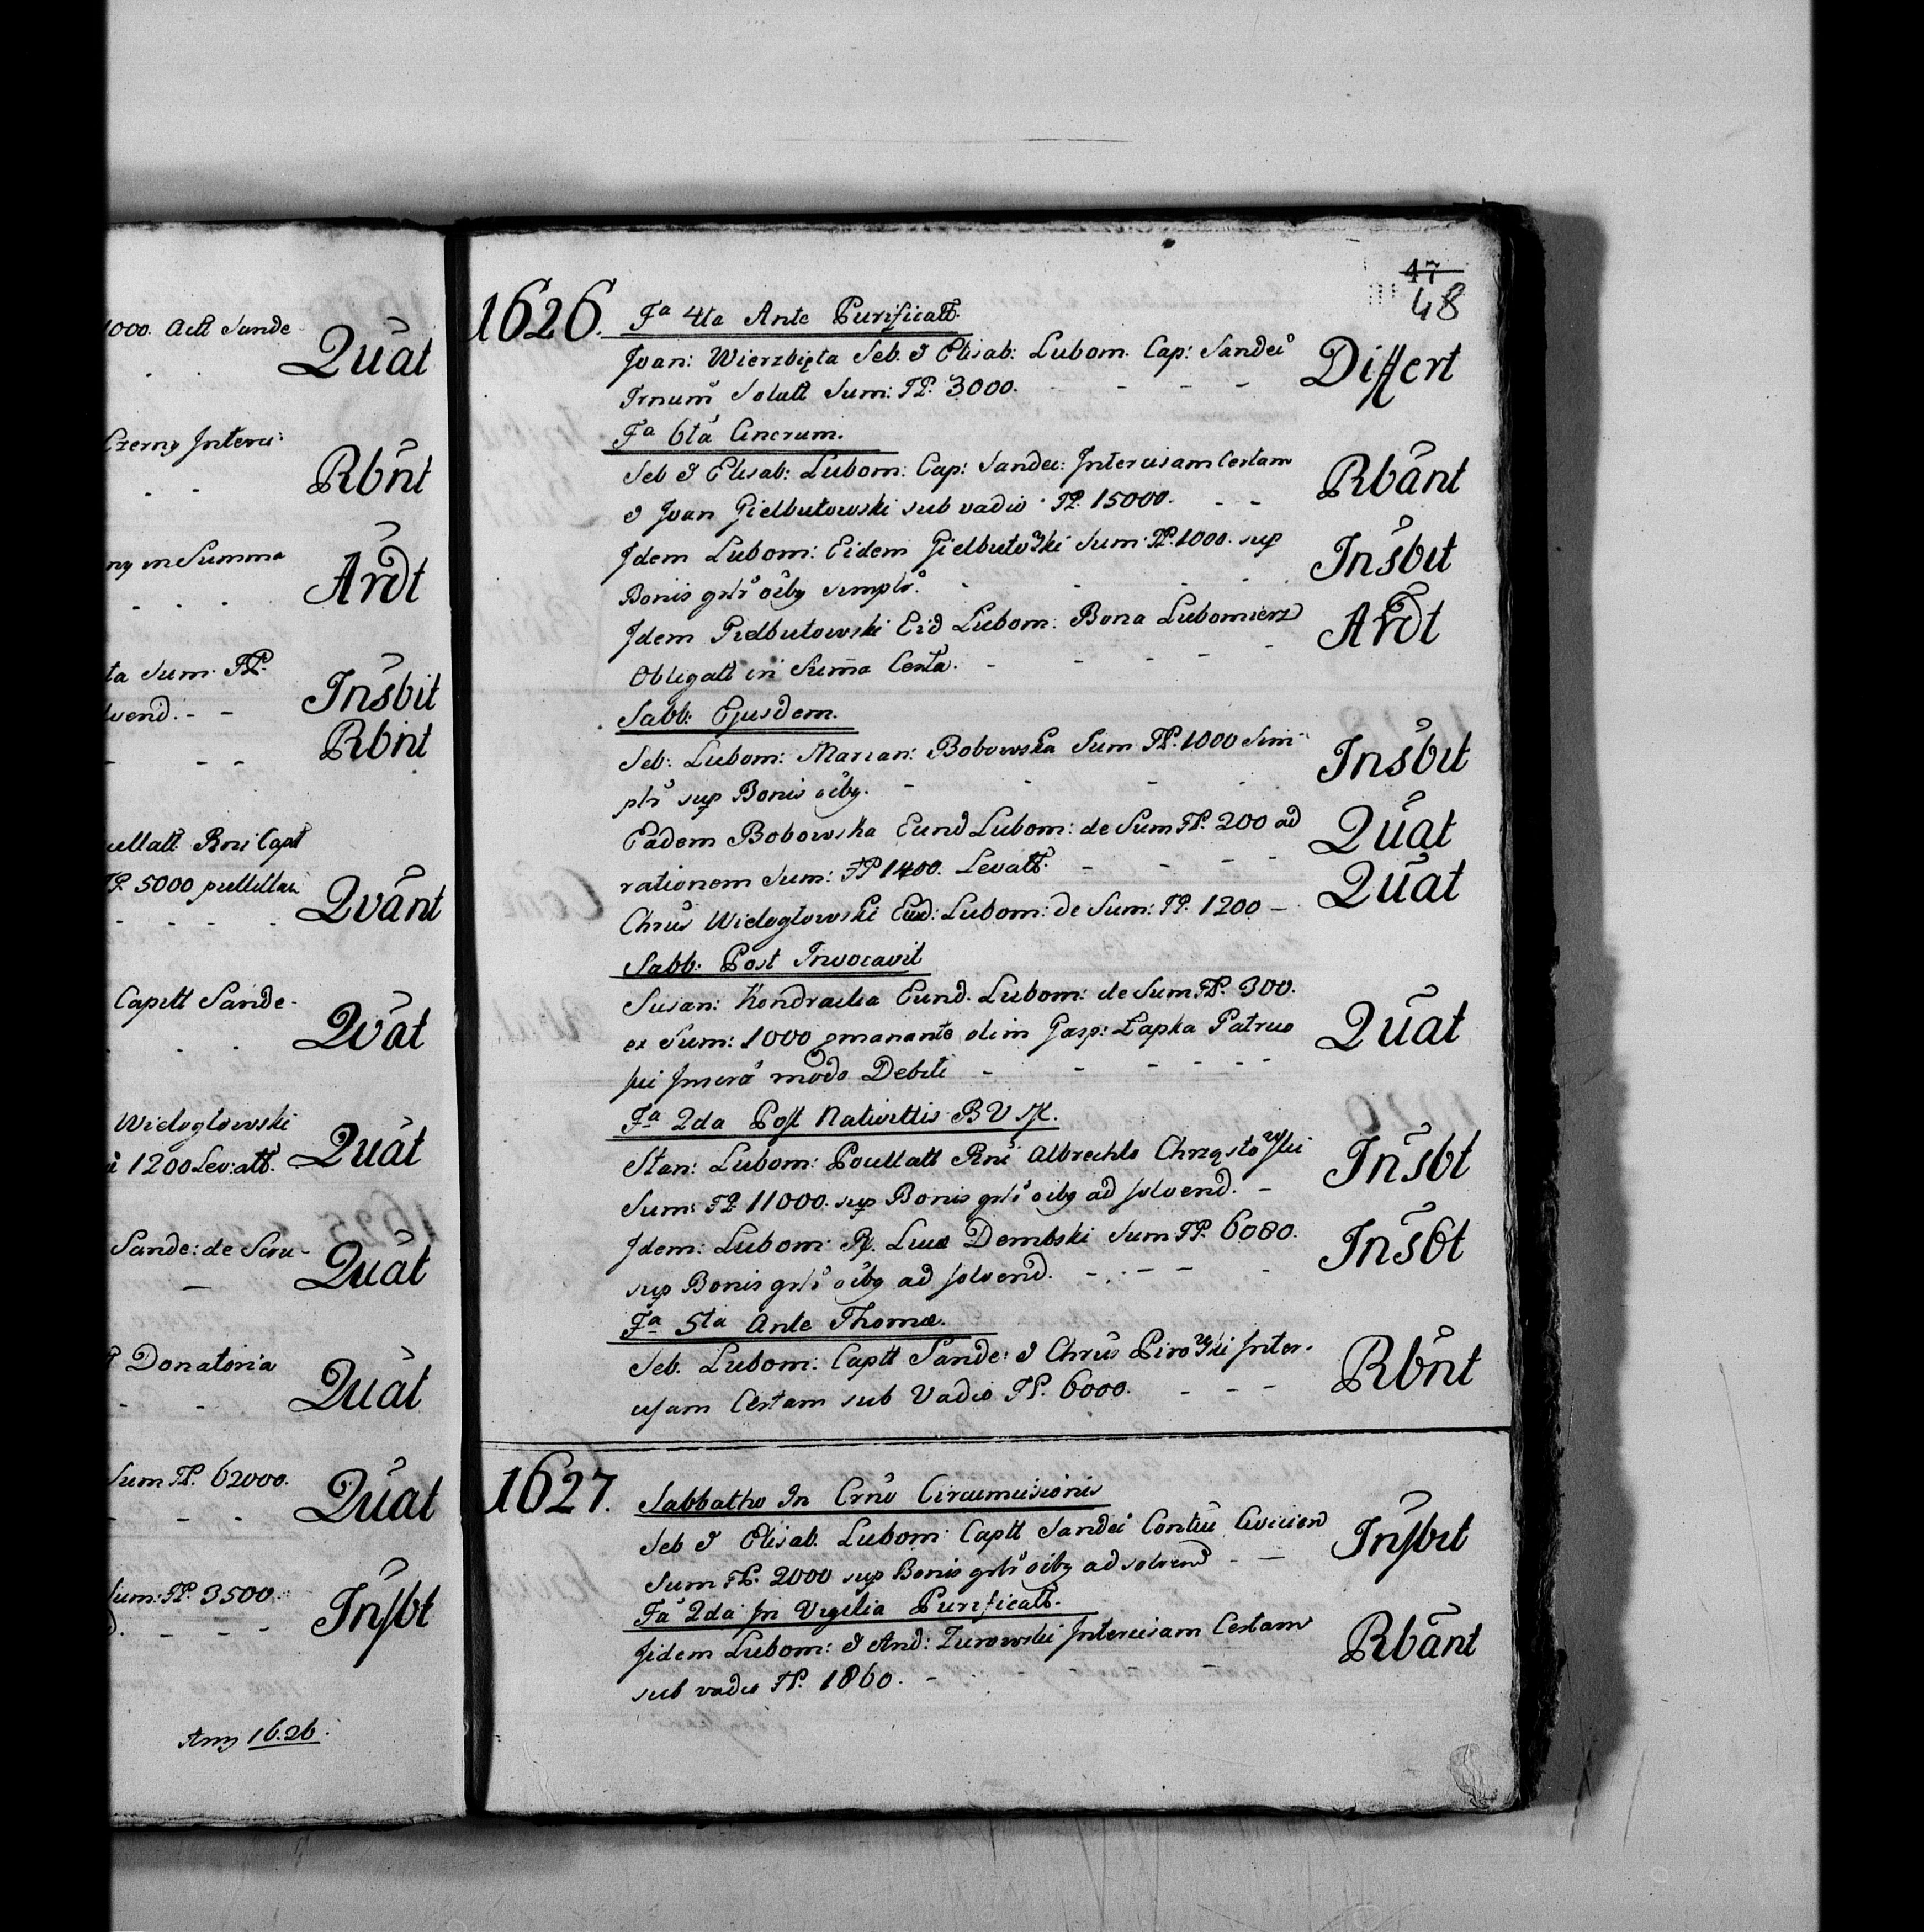 1000. Actt Sande
Quat
Czerny Interci:
Rbnt
ny in Summa
Ardt
ta Sum. FP.
Insbit
lvend. - -
Rbnt
cultatt Rni Captt
FP. 5000
Qvant
Capitt Sande-
Qvat
Wieloglowski
1200 Lev: att.
Quat
Sande: de Scru-
Quat
Donatoria
Quat
Sum FP. 62000.
Quat
Sum: FP. 3500.
Insbt
Any 1626.
47
48
1626. Fa 4ta Ante Purificatt.
Joan: Wierzbięta Seb. & Elisab: Lubom. Cap: Sandec
Differt
Trnum Solutt Sum: FP. 3000. - - -
Fa 6ta Cinerum.
Seb & Elisab: Lubom: Cap: Sandec: Intercisam Certam
Rbant
& Joan Gielbutowski sub vadio FP. 15000. - -
Idem Lubom: Eidem Gielbutowski Sum: FP. 1000. sup
Insbit
Bonis grlr oiby simplr.
Idem Gielbutowski Eid Lubom: Bona Lubomierz
Ardt
Obligatt in Suma Certa. - - - - -
Sabb: Ejusdem.
Seb: Lubom: Marian: Bobowska Sum FP. 1000 Sim-
Insbit
plr sup Bonis oiby. - - -
Eadem Bobowska Eund Lubom: de Sum FP. 200 ad
Quat
rationem Sum: FP 1400. Levatt. - - - -
Quat
Chrus Wieloglowski Eund: Lubom: de Sum: FP. 1200 -
Sabb: Post Invocavit
Susan: Kondracka Eund. Lubom: de Sum FP. 300.
ex Sum: 1000 pmanente olim Gasp: Łapka Patruo
Quat
sui modo Debiti - - - - -
Fa 2da Post Nativittis B V M.
Stan: Lubom: Pcullatt Rni Albrechto Chrząstowski
Insbt
Sum: FP 11000. sup Bonis grlr oiby ad solvend. -
Idem: Lubom: R. Luce Dembski Sum FP. 6080.
Insbt
sup Bonis grlr oiby ad solvend. - - - -
Fa 5ta Ante Thomæ.
Seb. Lubom: Captt Sande: & Chrus Pirowski Inter-
Rbnt
cisam Certam sub Vadio FP. 6000. - - -
1627. Sabbatho In Crno Circumcisionis
Seb & Elisab. Lubom: Captt Sandec Contui Civicien
Insbit
Sum FP. 2000 sup Bonis grlr oiby ad solvend - -
Fa 2da in Vigilia Purificatt.
Iidem Lubom: & And: Zurowski Intercisam Certam
Rbant
sub vadio FP. 1860. - - -